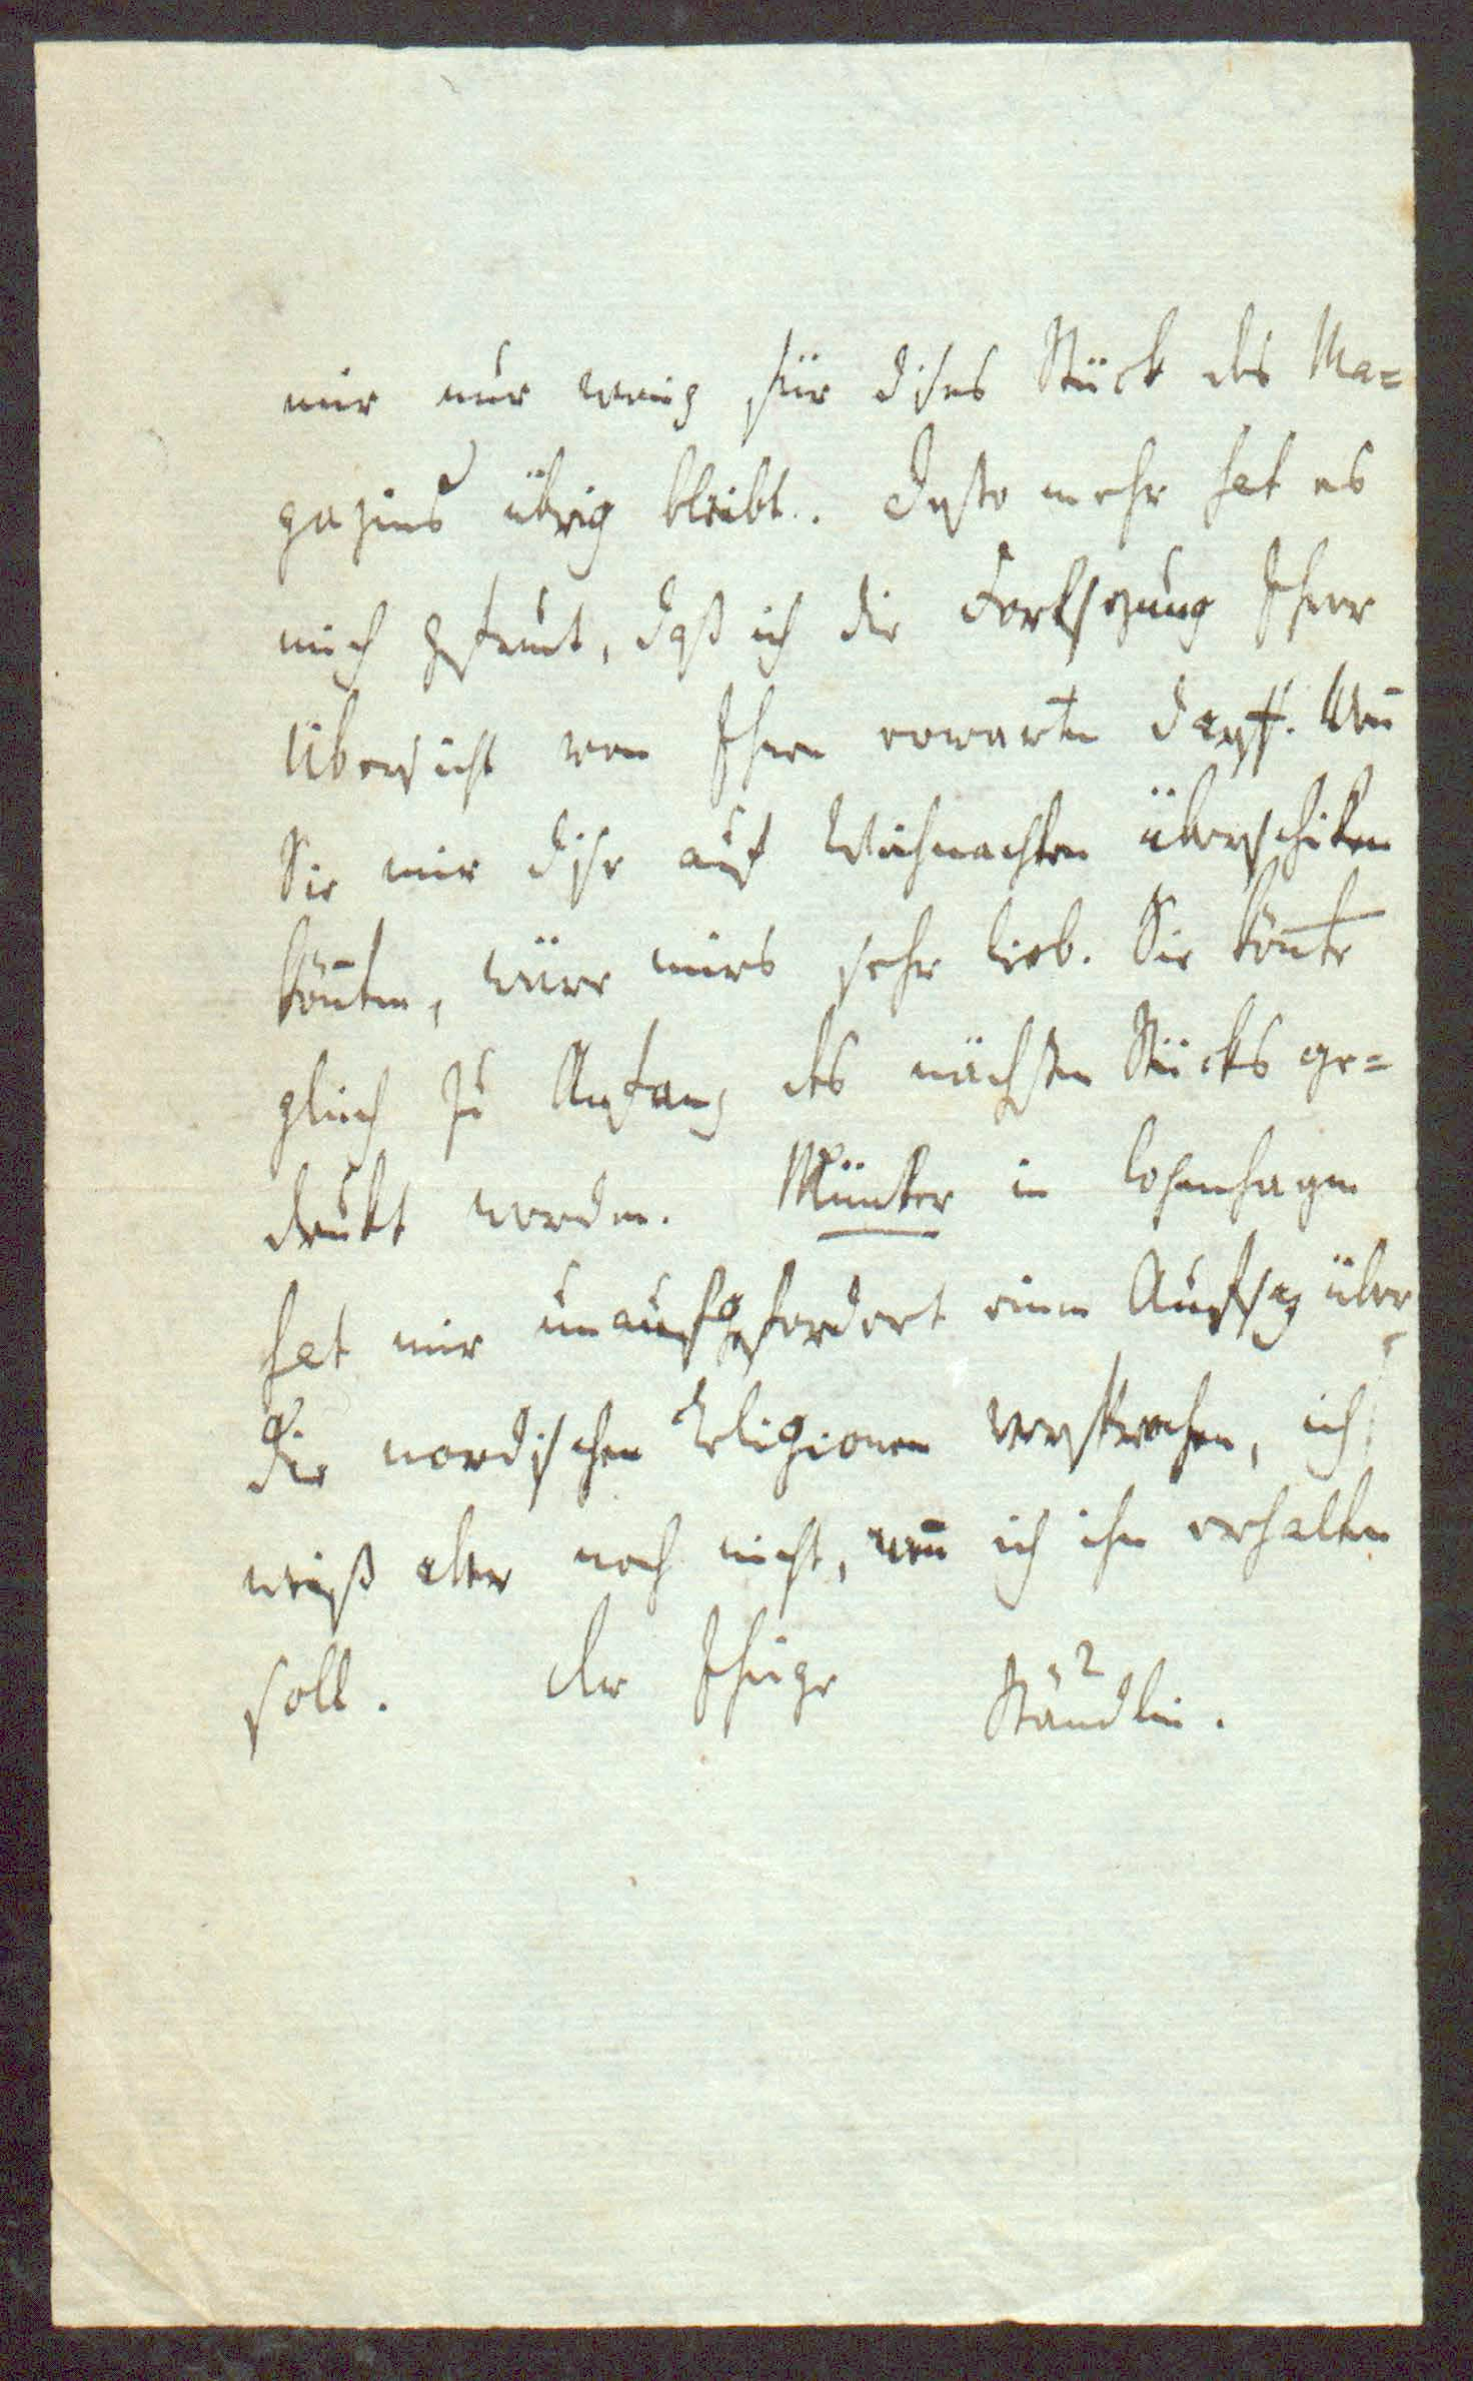 mir nur wenig für dises Stück des Ma=
gazins übrig bleibt. Desto mehr hat es
mich gefreut, daß ich die Fortsezung Ihrer
Übersicht von Ihnen erwarten darff. Wen̄
Sie mir dise auf Weihnachten überschiken
kön̄ten, wäre mirs sehr lieb. Sie kön̄te
gleich zu Anfang des nächsten Stücks ge=
drukt werden. Münter in Copenhagen
hat mir unaufgefordert einen Aufsaz über
die nordischen Religionen versprochen, ich
weiß aber noch nicht, wen̄ ich ihn erhalten
soll. Der Ihrige Stäudlin.